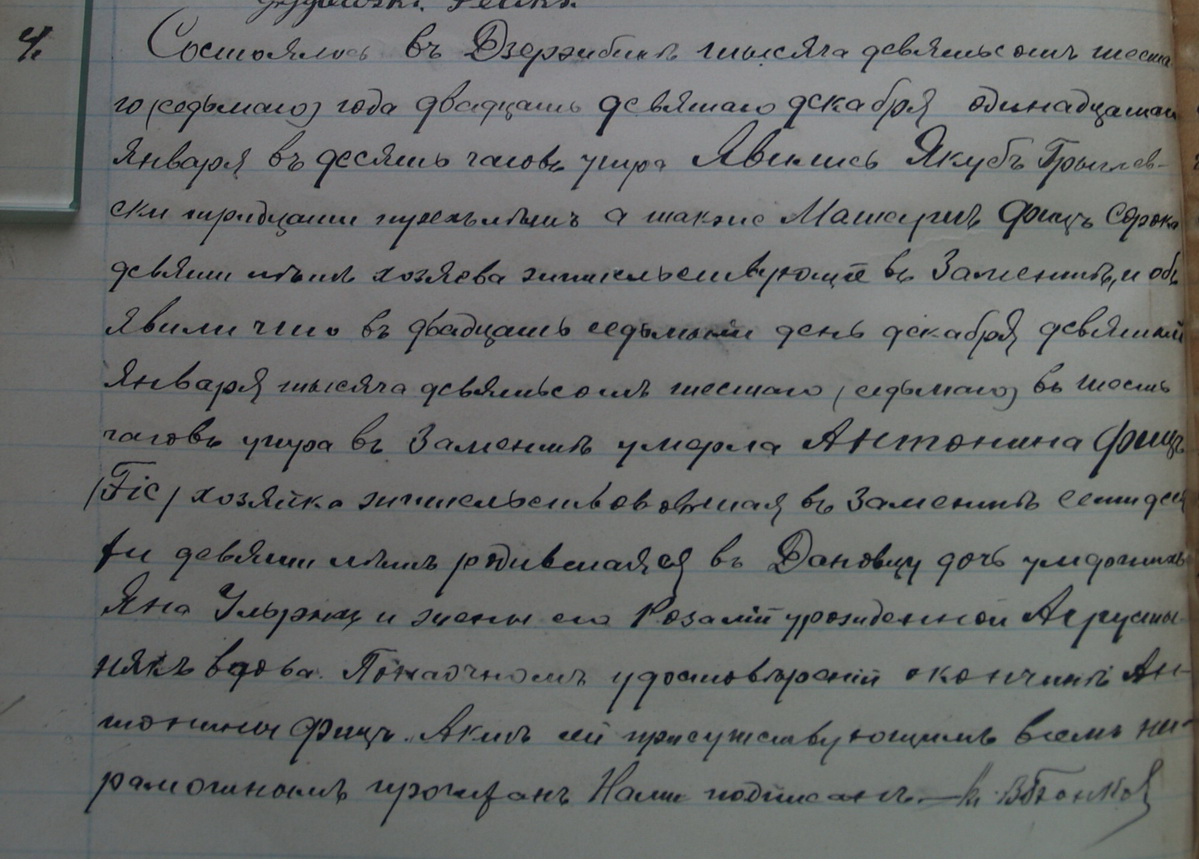 4.
Состоялось въ Дзержбинѣ тысяча девятьсотъ шеста-
го (седьмаго) года двадцать девятаго декабря одинадцатаго
Января въ десять часовъ утра Явились Якубъ Грызлев-
ски тридцати трехъ лѣтъ а также Матеушъ Фицъ Сорока
девяти лѣтъ хозяева жительствующіе въ Заменитѣ, и объ
явили что въ двадцать седьмый день декабря девятый
Января тысяча девятьсотъ шестаго (седьмаго) въ шесть
часовъ утра въ Заменитѣ умерла Антонина Фицъ
(Fic) хозяйка жительствовавшая въ Заменитѣ семидеся
ти девяти лѣтъ родившаяся въ Дановцу дочь умершихъ
Яна и жены его Розаліи урожденной Августы-
някъ вдова. По настоящемъ удостовѣреніи о кончинѣ Ан-
тонины Фицъ. Актъ сей присутствующимъ всемъ не-
грамотнымъ прочитанъ Нами подписанъ.